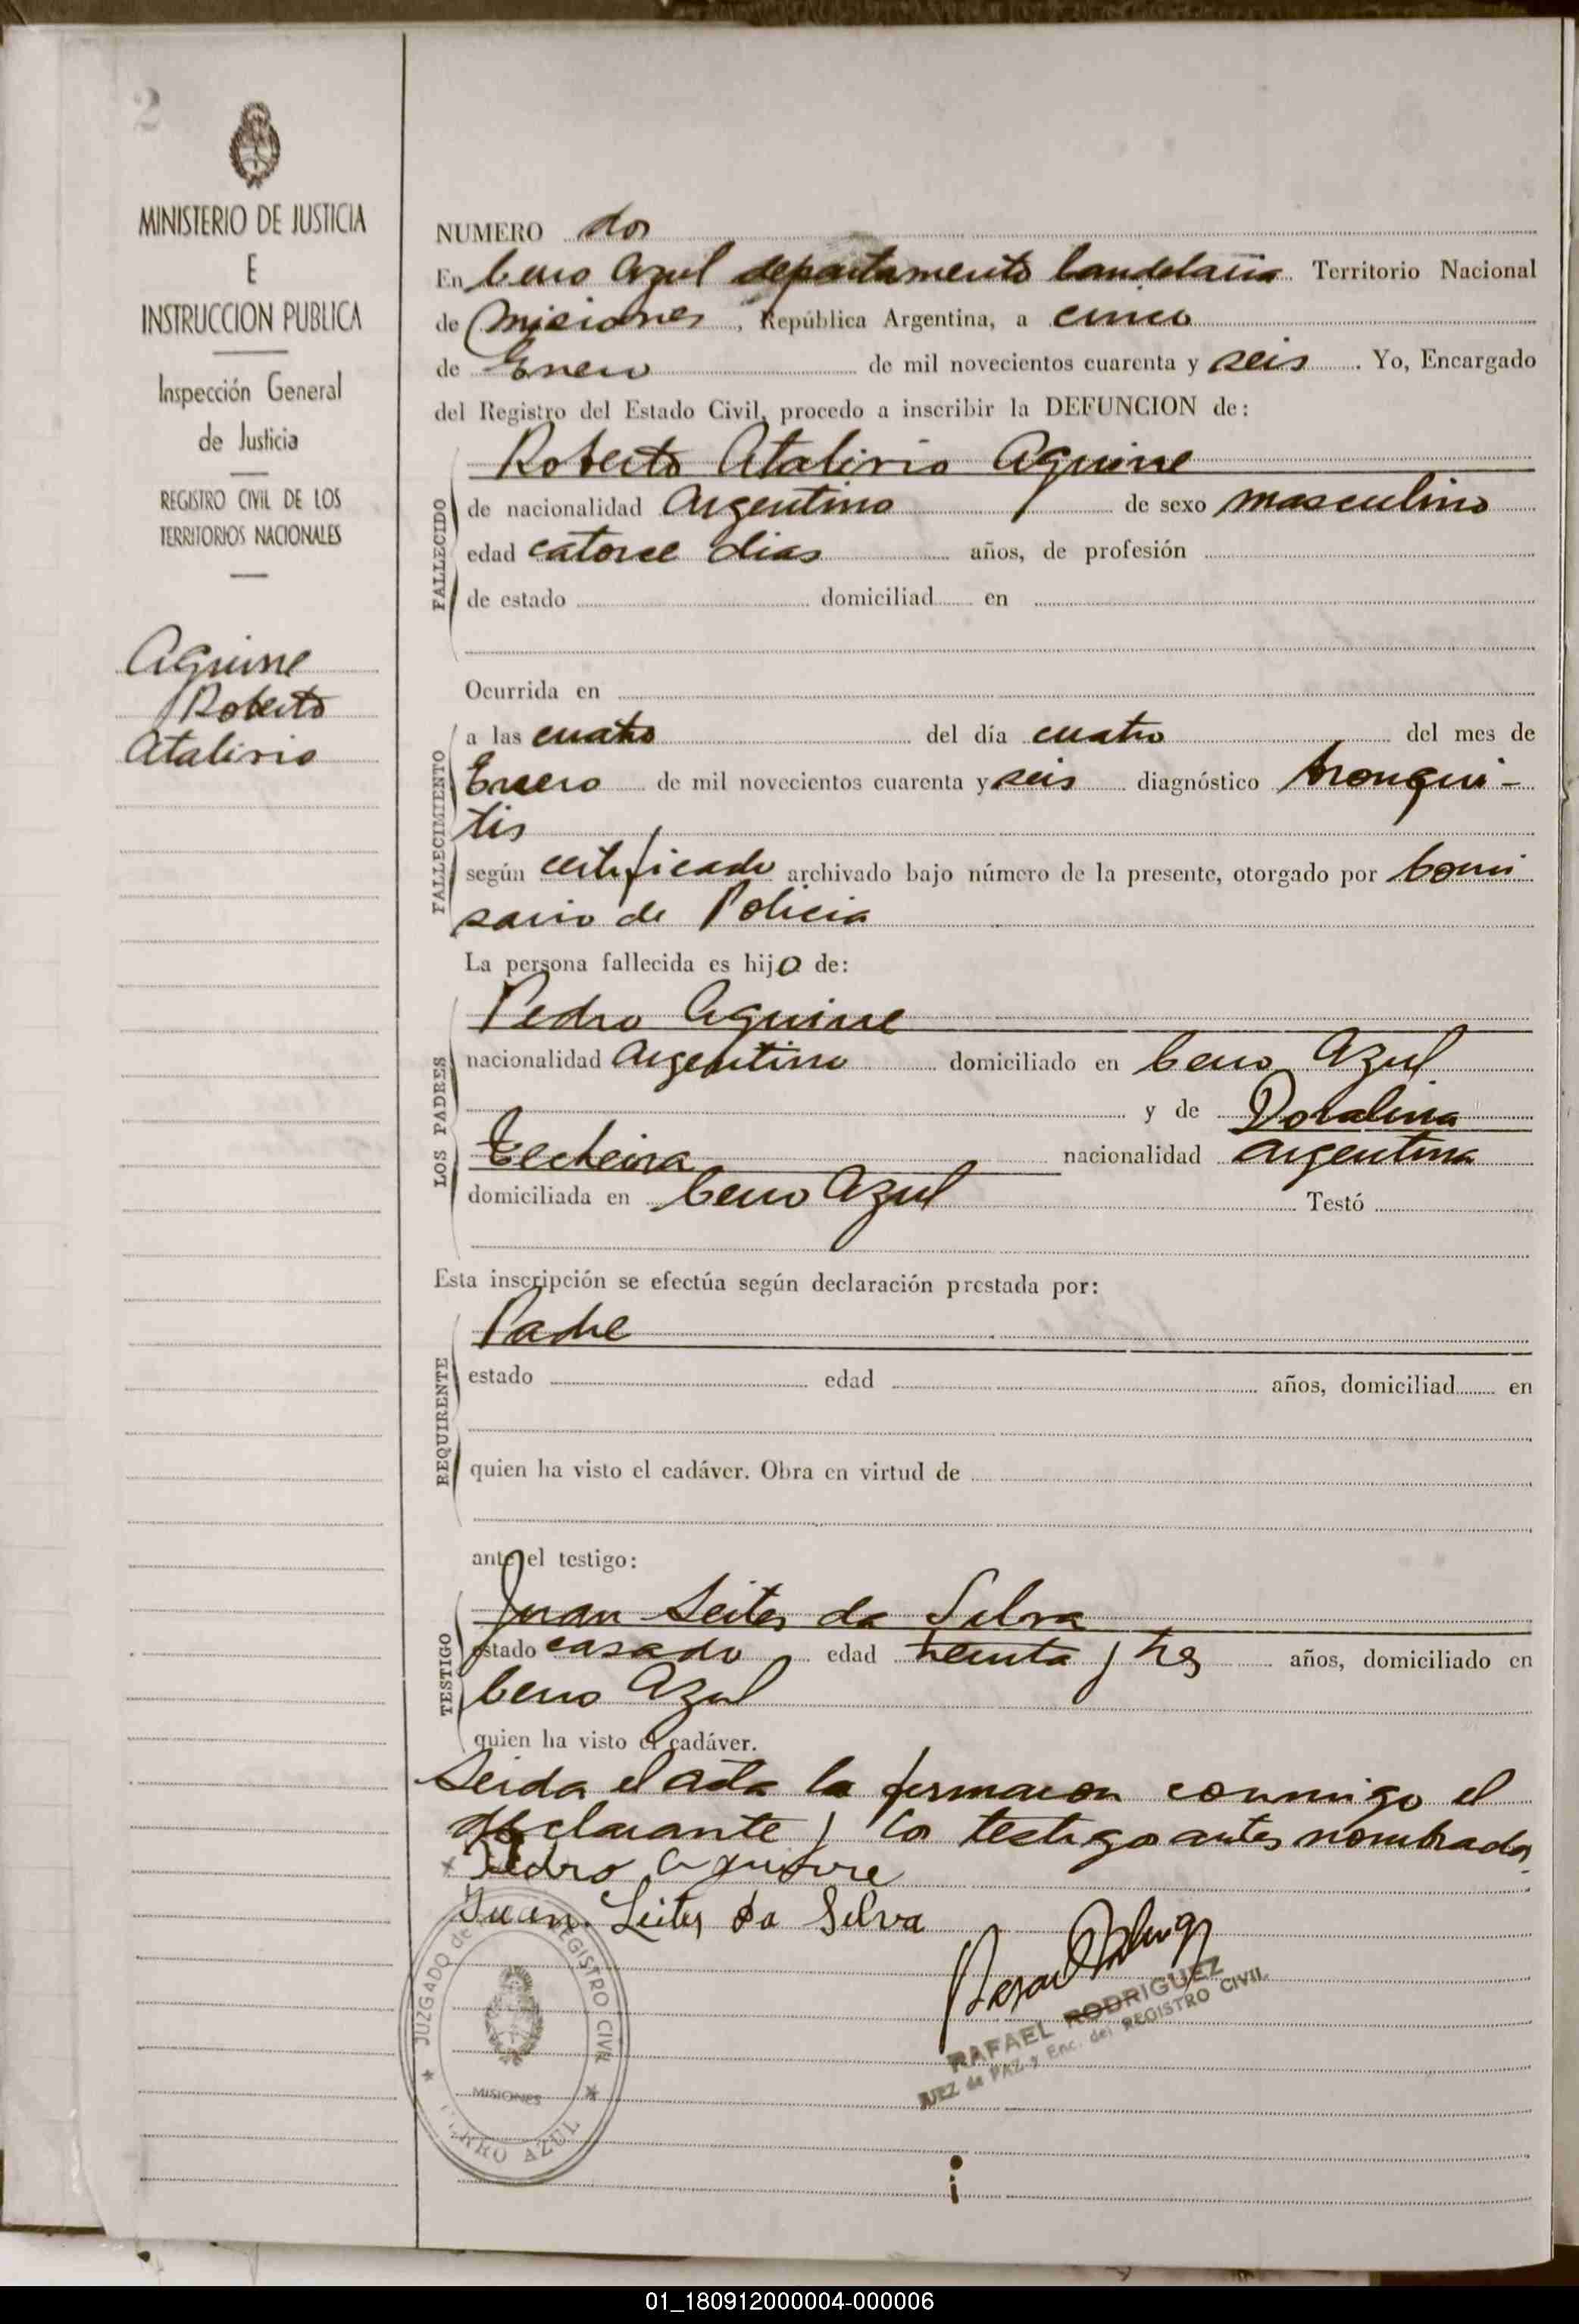 2
MINISTERIO DE JUSTICIA
E
INSTRUCCION PUBLICA
Inspección General
de Justicia
REGISTRO CIVIL DE LOS
TERRITORIOS NACIONALES
Aguirre
Roberto
Atalirio
NUMERO dos
En Cerro Azul departamento Candelaria Territorio Nacional
de Misiones, República Argentina, a cinco
de Enero de mil novecientos cuarenta y seis. Yo, Encargado
del Registro del Estado Civil, procedo a inscribir la DEFUNCION de:
Roberto Atalirio Aguirre
FALLECIDO
de nacionalidad Argentino de sexo masculino
edad catorce dias años, de profesión
de estado domiciliad en
Ocurrida en
FALLECIMIENTO
a las cuatro del día cuatro del mes de
Enero de mil novecientos cuarenta y seis diagnóstico bronqui-
tis
según certificado archivado bajo número de la presente, otorgado por Comi
sario de Policia
La persona fallecida es hijo de:
LOS PADRES
Pedro Aguirre
nacionalidad Argentino domiciliado en Cerro Azul
y de Doralina
Techeira nacionalidad argentina
domiciliada en Cerro Azul Testó
Esta inscripción se efectúa según declaración prestada por:
REQUIRENTE
Padre
estado edad años, domiciliad en
quien ha visto el cadáver. Obra en virtud de
ante el testigo:
TESTIGO
Juan Leites da Silva
estado casado edad treinta y tres años, domiciliado en
Cerro Azul
quien ha visto el cadáver.
Leida el acta la firmaron conmigo el
declarante y los testigos antes nombrados
x Pedro Aguirre
Juan Leites da Silva
JUZGADO de REGISTRO CIVIL
MISIONES
CERRO AZUL
RAFAEL RODRIGUEZ
JUEZ de PAZ y Enc. del REGISTRO CIVIL
01_180912000004-000006